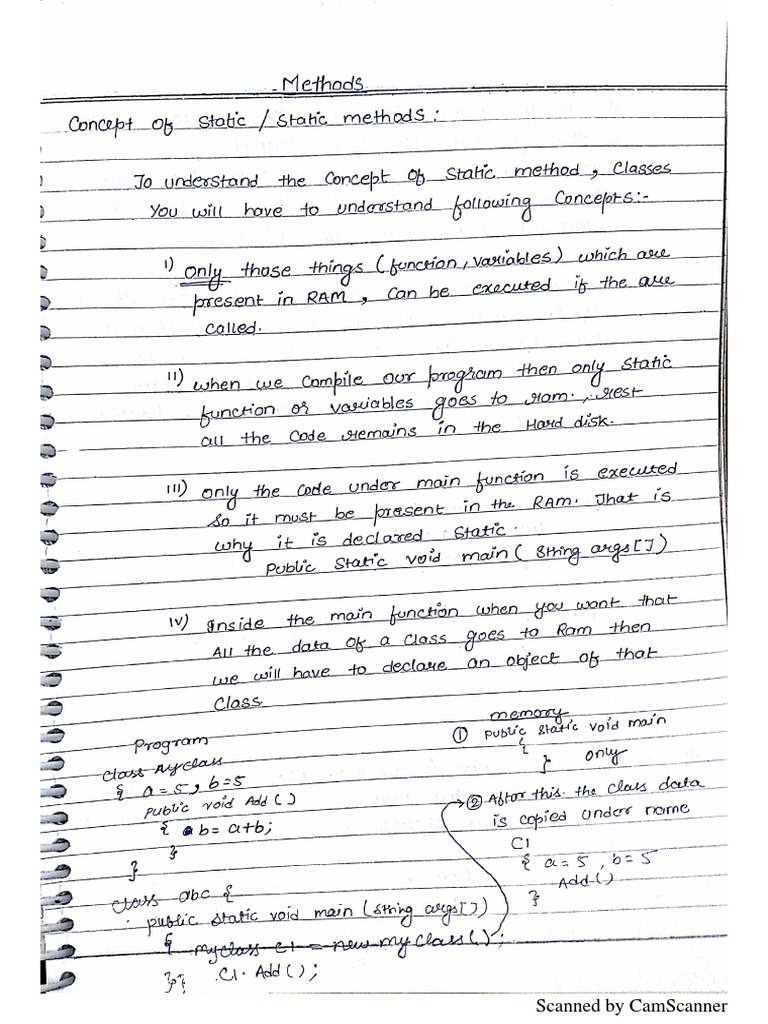 Methods
Concept of Static / Static methods:
To understand the Concept of Static method, Classes
You will have to understand following Concepts:-
i) Only those things (function, variables) which are
present in RAM, Can be executed if the are
called.
ii) when we compile our program then only Static
function or variables goes to ram., rest
all the Code remains in the Hard disk.
iii) only the code under main function is executed
So it must be present in the RAM. That is
why it is declared Static.
Public Static void main( String args[])
iv) Inside the main function when you want that
All the data of a class goes to Ram then
we will have to declare an object of that
Class
Program
Class Myclass
{ a=5, b=5
Public void Add()
{ b= a+b;
}
}
class abc {
public Static void main (String args[])
{ Myclass C1 = new myclass();
}} .C1. Add();
memory
① Public Static void main
{
} only
② After this the class data
is copied under name
C1
{ a=5, b=5
Add()
}
Scanned by CamScanner